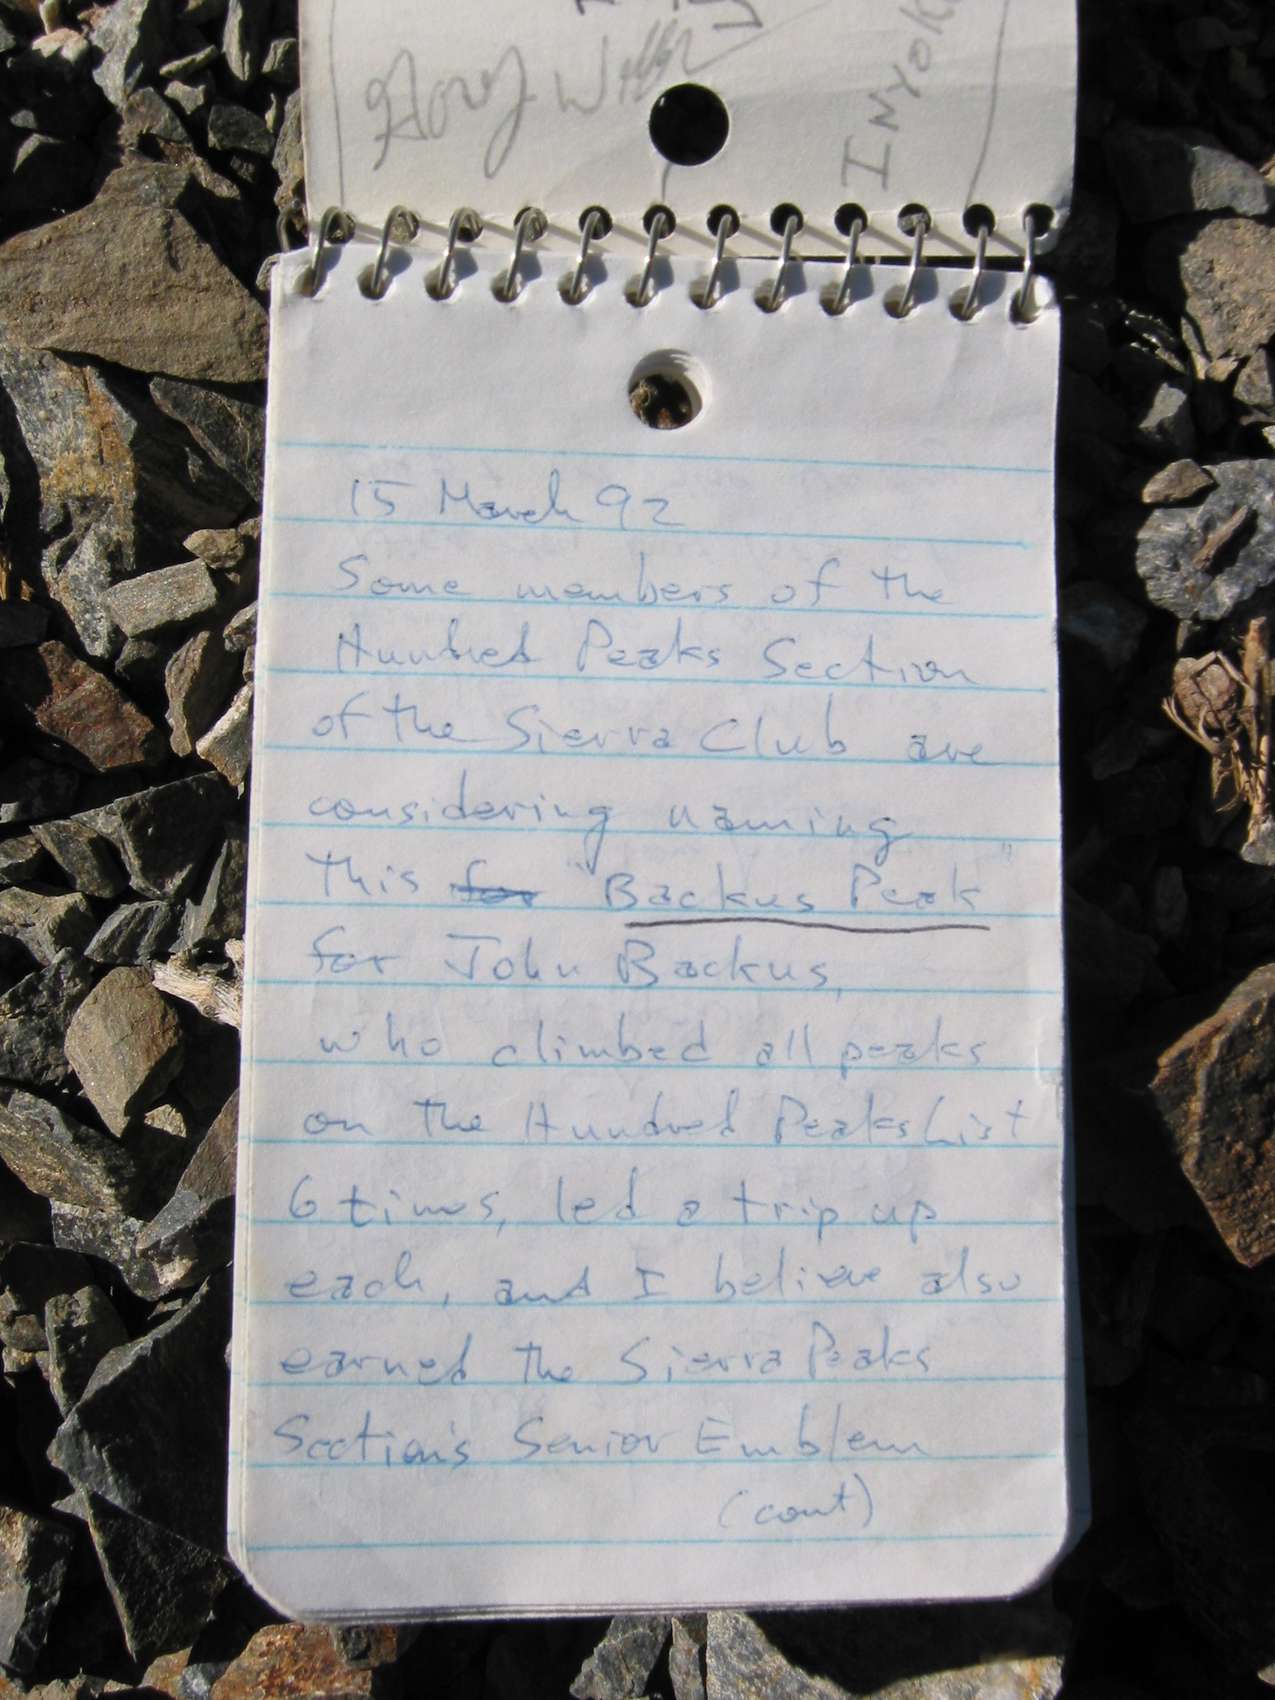 INYOK
15 March 92
Some members of the
Hundred Peaks Section
of the Sierra Club are
considering naming
this for "Backus Peak"
for John Backus,
who climbed all peaks
on the Hundred Peaks List
6 times, led a trip up
each, and I believe also
earned the Sierra Peaks
Section's Senior Emblem
(cont)